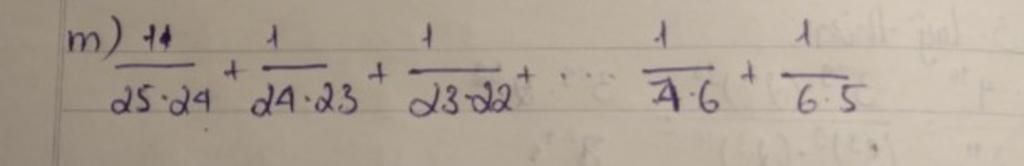 m) 11/25·24 + 1/24·23 + 1/23·22 + ... 1/7·6 + 1/6·5